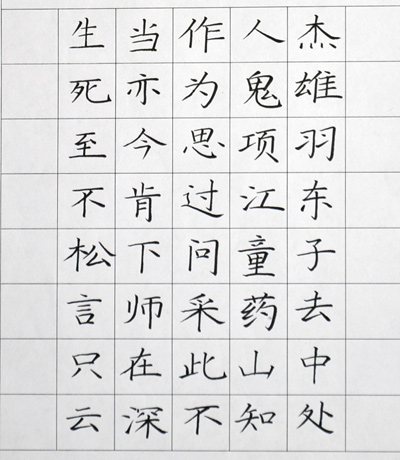 生当作人杰
死亦为鬼雄
至今思项羽
不肯过江东
松下问童子
言师采药去
只在此山中
云深不知处